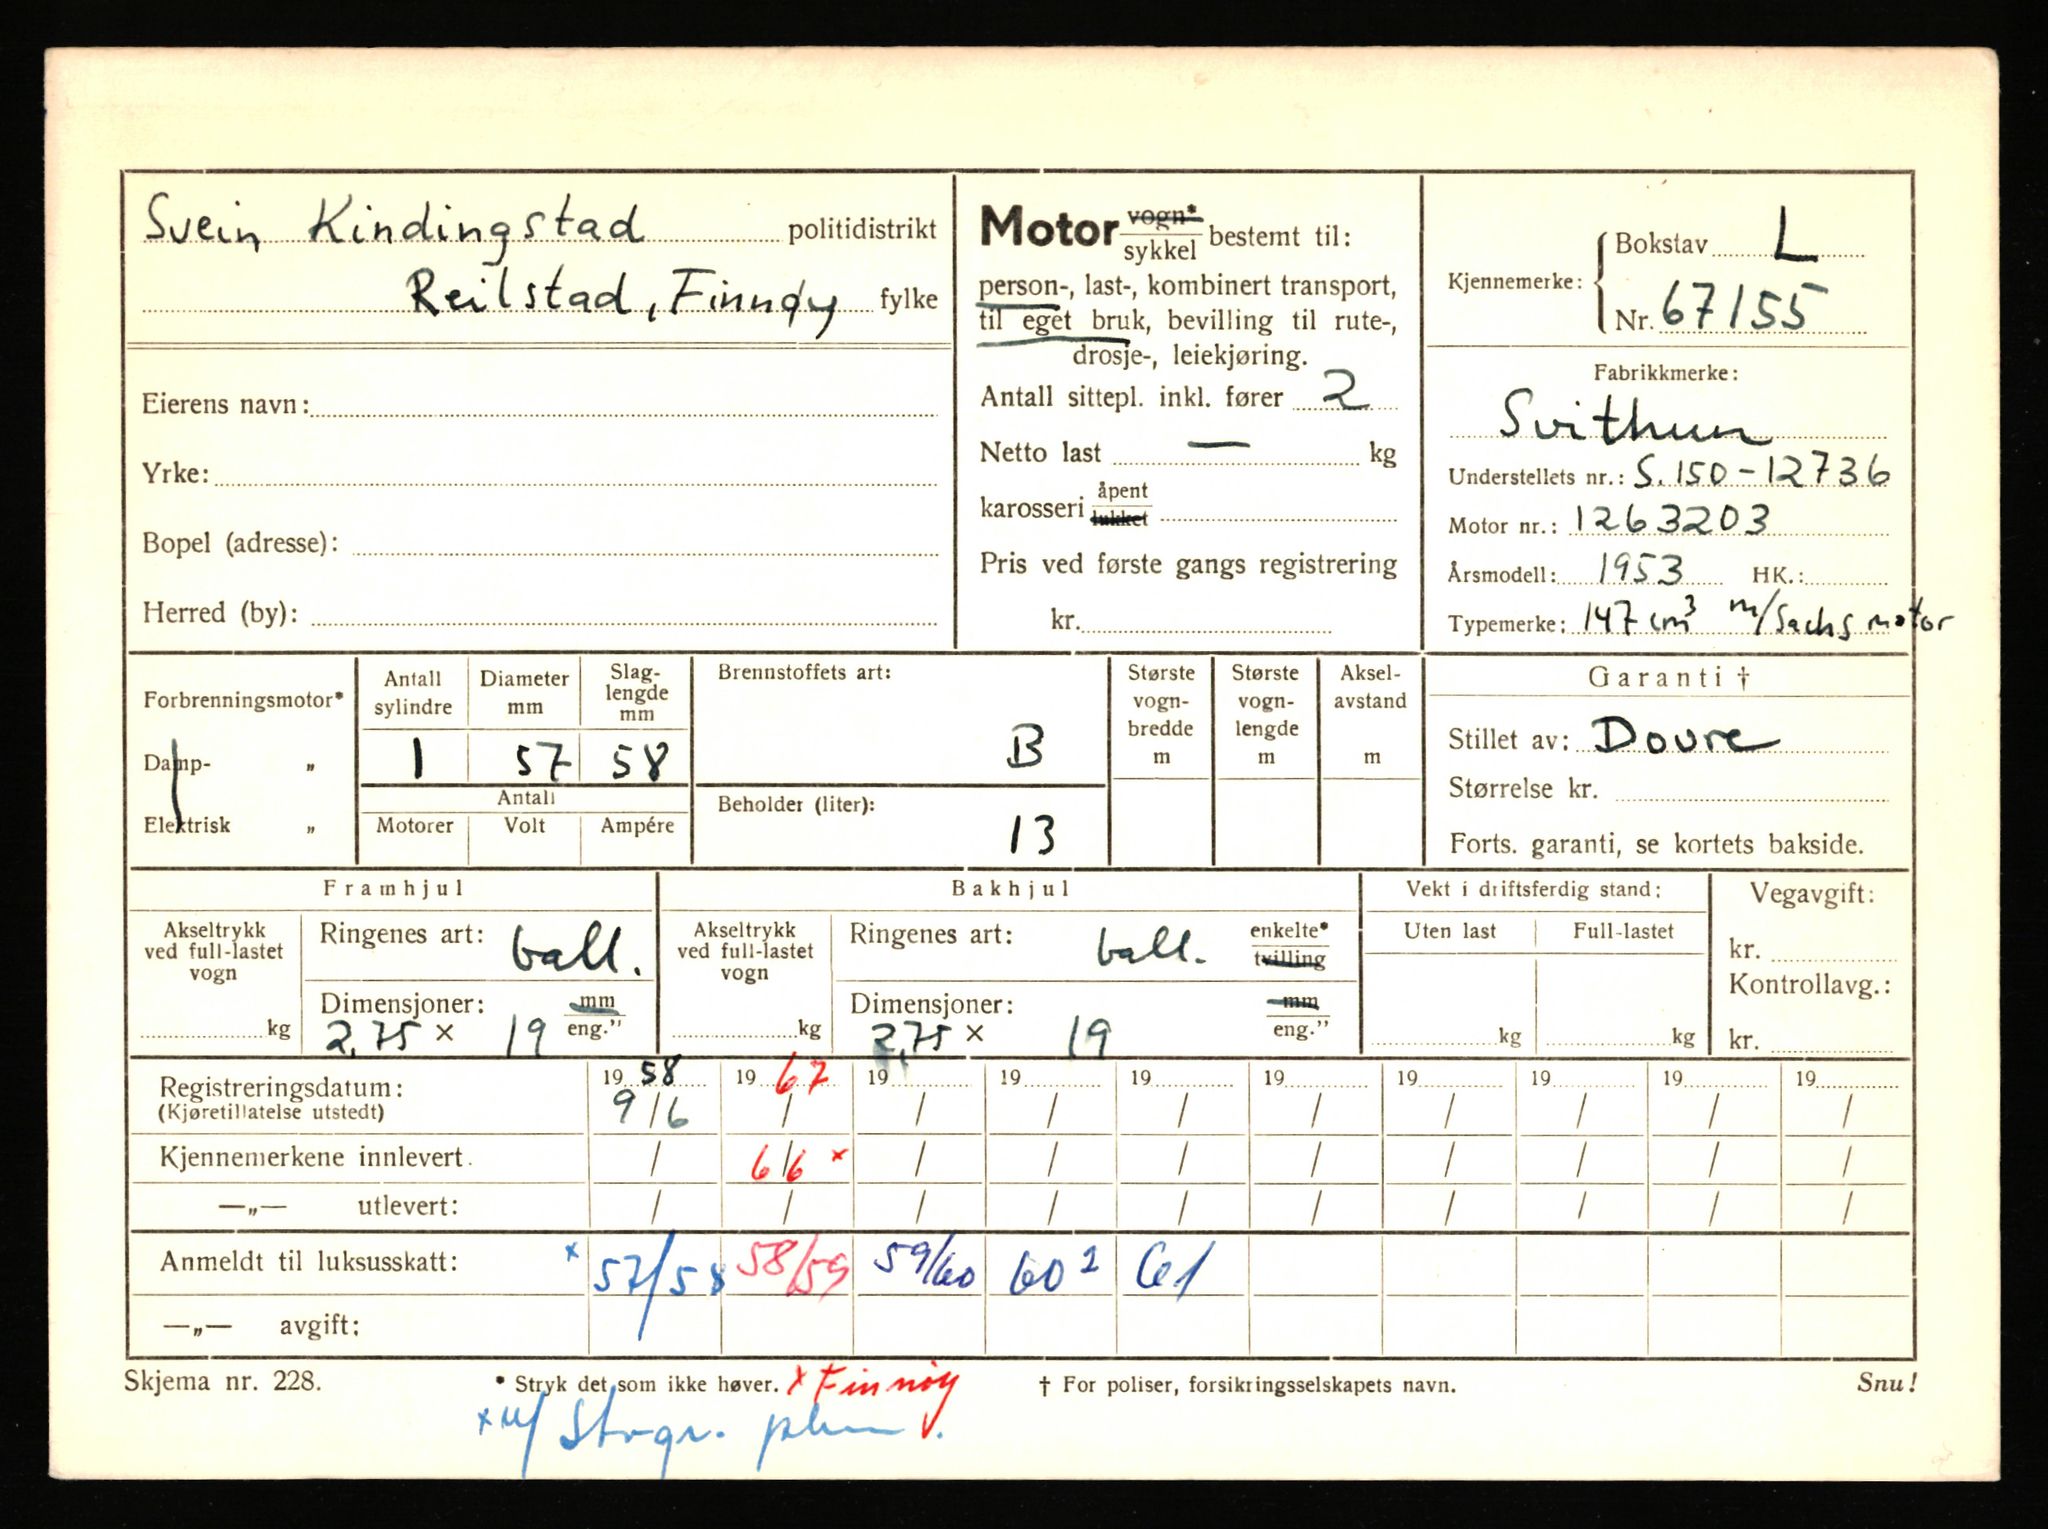 Svein Kindingstad politidistrikt
Reilstad, Finnøy fylke
Eierens navn:
Yrke:
Bopel (adresse):
Herred (by):
Motor vogn* sykkel bestemt til:
person-, last-, kombinert transport,
til eget bruk, bevilling til rute-,
drosje-, leiekjøring.
Antall sittepl. inkl. fører 2
Netto last — kg
karosseri åpent lukket
Pris ved første gangs registrering
kr.
Kjennemerke: Bokstav L
Nr. 67155
Fabrikkmerke:
Svithun
Understellets nr.: S.150-12736
Motor nr.: 1263203
Årsmodell: 1953 HK.:
Typemerke: 147 cm³ m/Sachs motor
Forbrenningsmotor*
Damp- „
Elektrisk „
Antall sylindre
Diameter mm
Slaglengde mm
1 57 58
Antall
Motorer Volt Ampére
Brennstoffets art:
B
Beholder (liter):
13
Største vogn-bredde m
Største vogn-lengde m
Aksel-avstand m
Garanti †
Stillet av: Dovre
Størrelse kr.
Forts. garanti, se kortets bakside.
Framhjul
Akseltrykk ved full-lastet vogn
kg
Ringenes art: ball.
Dimensjoner: mm
2,75 × 19 eng."
Bakhjul
Akseltrykk ved full-lastet vogn
kg
Ringenes art: ball. enkelte* tvilling
Dimensjoner: mm
2,75 × 19 eng."
Vekt i driftsferdig stand:
Uten last Full-lastet
kg kg
Vegavgift:
kr.
Kontrollavg.:
kr.
Registreringsdatum: 19 58 19 67 19 19 19 19 19 19 19 19
(Kjøretillatelse utstedt) 9/6 / / / / / / / / /
Kjennemerkene innlevert. / 6/6 × / / / / / / / /
—„— utlevert: / / / / / / / / / /
Anmeldt til luksusskatt: × 57/58 58/59 59/60 60² 61
—„— avgift:
Skjema nr. 228. * Stryk det som ikke høver. × Finnøy † For poliser, forsikringsselskapets navn. Snu!